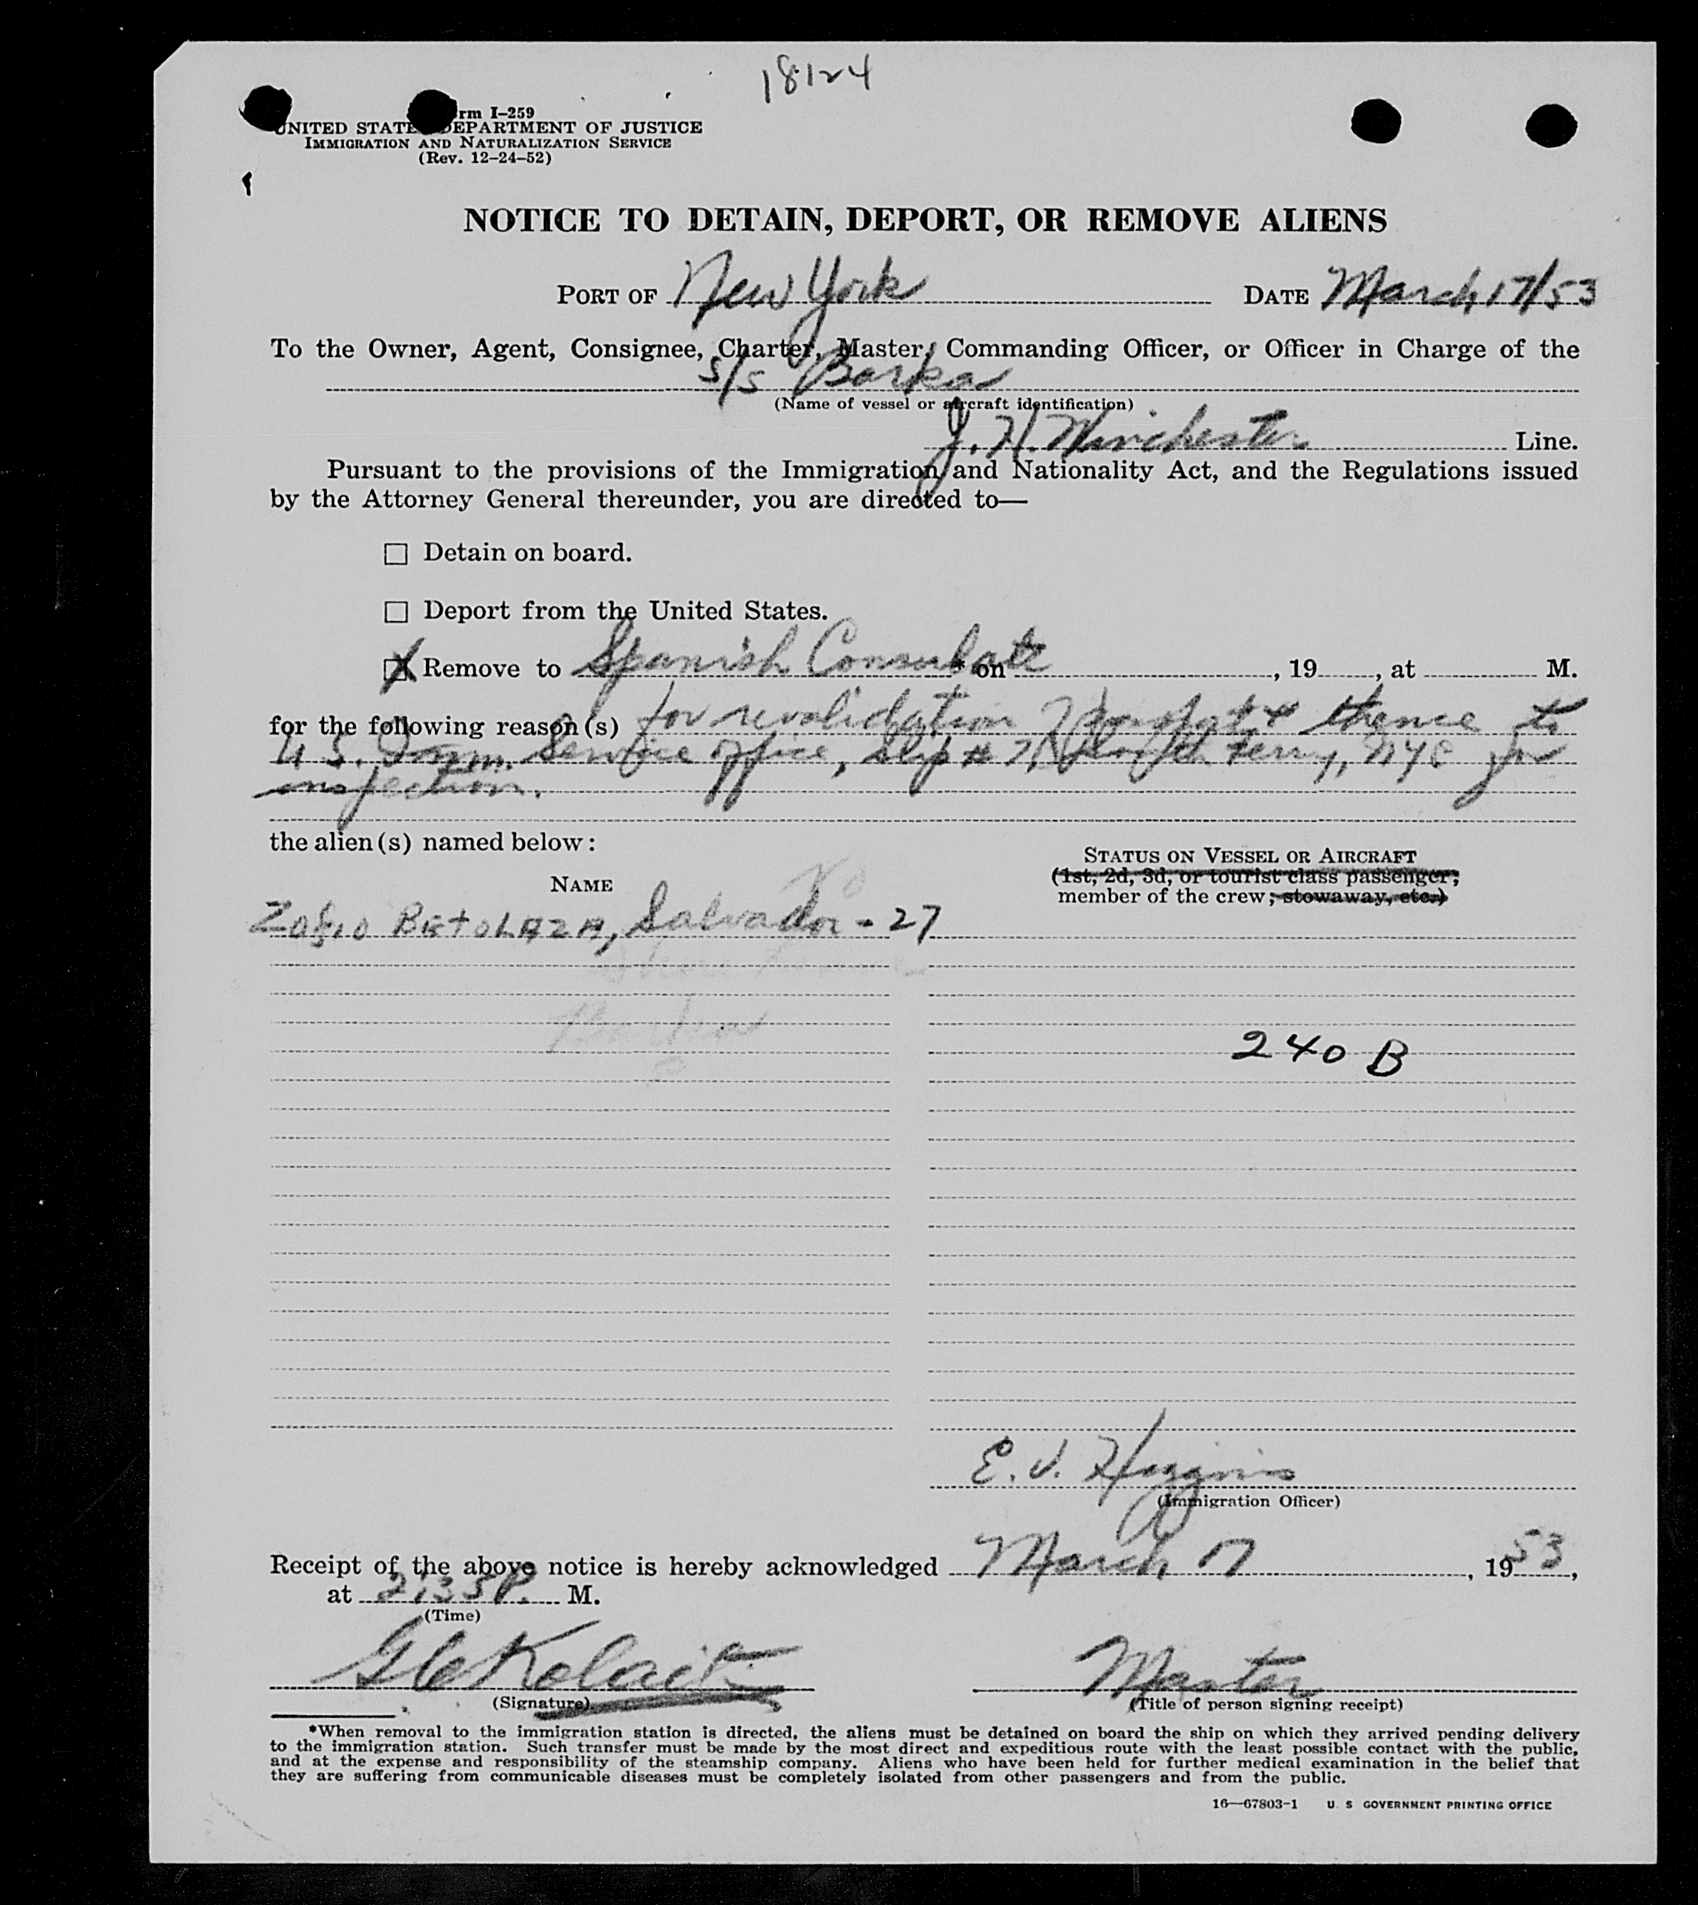 18124
rm I-259
UNITED STATE DEPARTMENT OF JUSTICE
IMMIGRATION AND NATURALIZATION SERVICE
(Rev. 12-24-52)
NOTICE TO DETAIN, DEPORT, OR REMOVE ALIENS
PORT OF New York DATE March 17/53
To the Owner, Agent, Consignee, Charter, Master, Commanding Officer, or Officer in Charge of the
S/S Barka
(Name of vessel or aircraft identification)
J. H. Winchester Line.
Pursuant to the provisions of the Immigration and Nationality Act, and the Regulations issued
by the Attorney General thereunder, you are directed to—
☐ Detain on board.
☐ Deport from the United States.
☒ Remove to Spanish Consulate * on , 19 , at M.
for the following reason(s) for revalidation thence to
U S. Imm. Service office, slip # 7, Ferry, NYC for
inspection.
the alien(s) named below:
NAME
STATUS ON VESSEL OR AIRCRAFT
(1st, 2d, 3d, or tourist class passenger;
member of the crew; stowaway, etc.)
BETOLAZA, Salvador - 27
240 B
E. J. Higgins
(Immigration Officer)
Receipt of the above notice is hereby acknowledged March 17, 1953,
at 2:35 P. M.
(Time)
Master
(Signature) (Title of person signing receipt)
*When removal to the immigration station is directed, the aliens must be detained on board the ship on which they arrived pending delivery
to the immigration station. Such transfer must be made by the most direct and expeditious route with the least possible contact with the public,
and at the expense and responsibility of the steamship company. Aliens who have been held for further medical examination in the belief that
they are suffering from communicable diseases must be completely isolated from other passengers and from the public.
16—67803-1 U. S GOVERNMENT PRINTING OFFICE